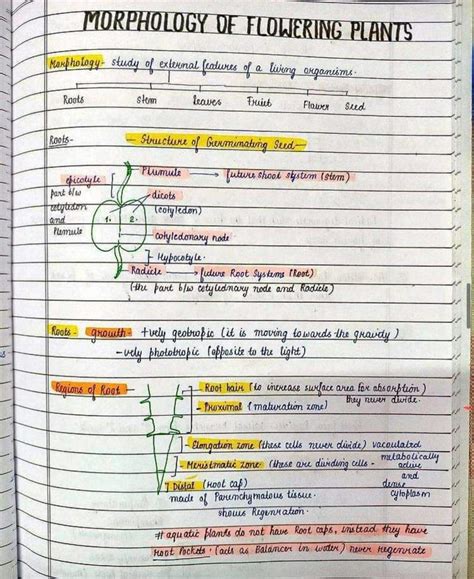 MORPHOLOGY OF FLOWERING PLANTS
Morphology- study of external features of a living organisms.
Roots stem leaves Fruit Flower Seed
Roots- Structure of Germinating Seed
Plumule → future shoot system (stem)
epicotyle
part b/w
cotyledon
and
Plumule
dicots
(cotyledon)
1. 2.
cotyledonary node
Hypocotyle.
Radicle → future Root Systems (Root)
(the part b/w cotylednary node and Radicle)
Roots- growth- +vely geotropic (it is moving towards the gravity)
-vely phototropic (opposite to the light)
Regions of Root
Root hair (to increase surface area for absorption)
they never divide.
Proximal (maturation zone)
Elongation zone (these cells never divide) vacoulated
Meristmatic zone (these are dividing cells - metabolically
active
and
dense
cytoplasm
Distal (root cap)
made of Parenchymatous tissue.
shows Regenration.
# aquatic plants do not have Root caps, instead they have
Root Pockets. (acts as Balancer in water) never regenrate